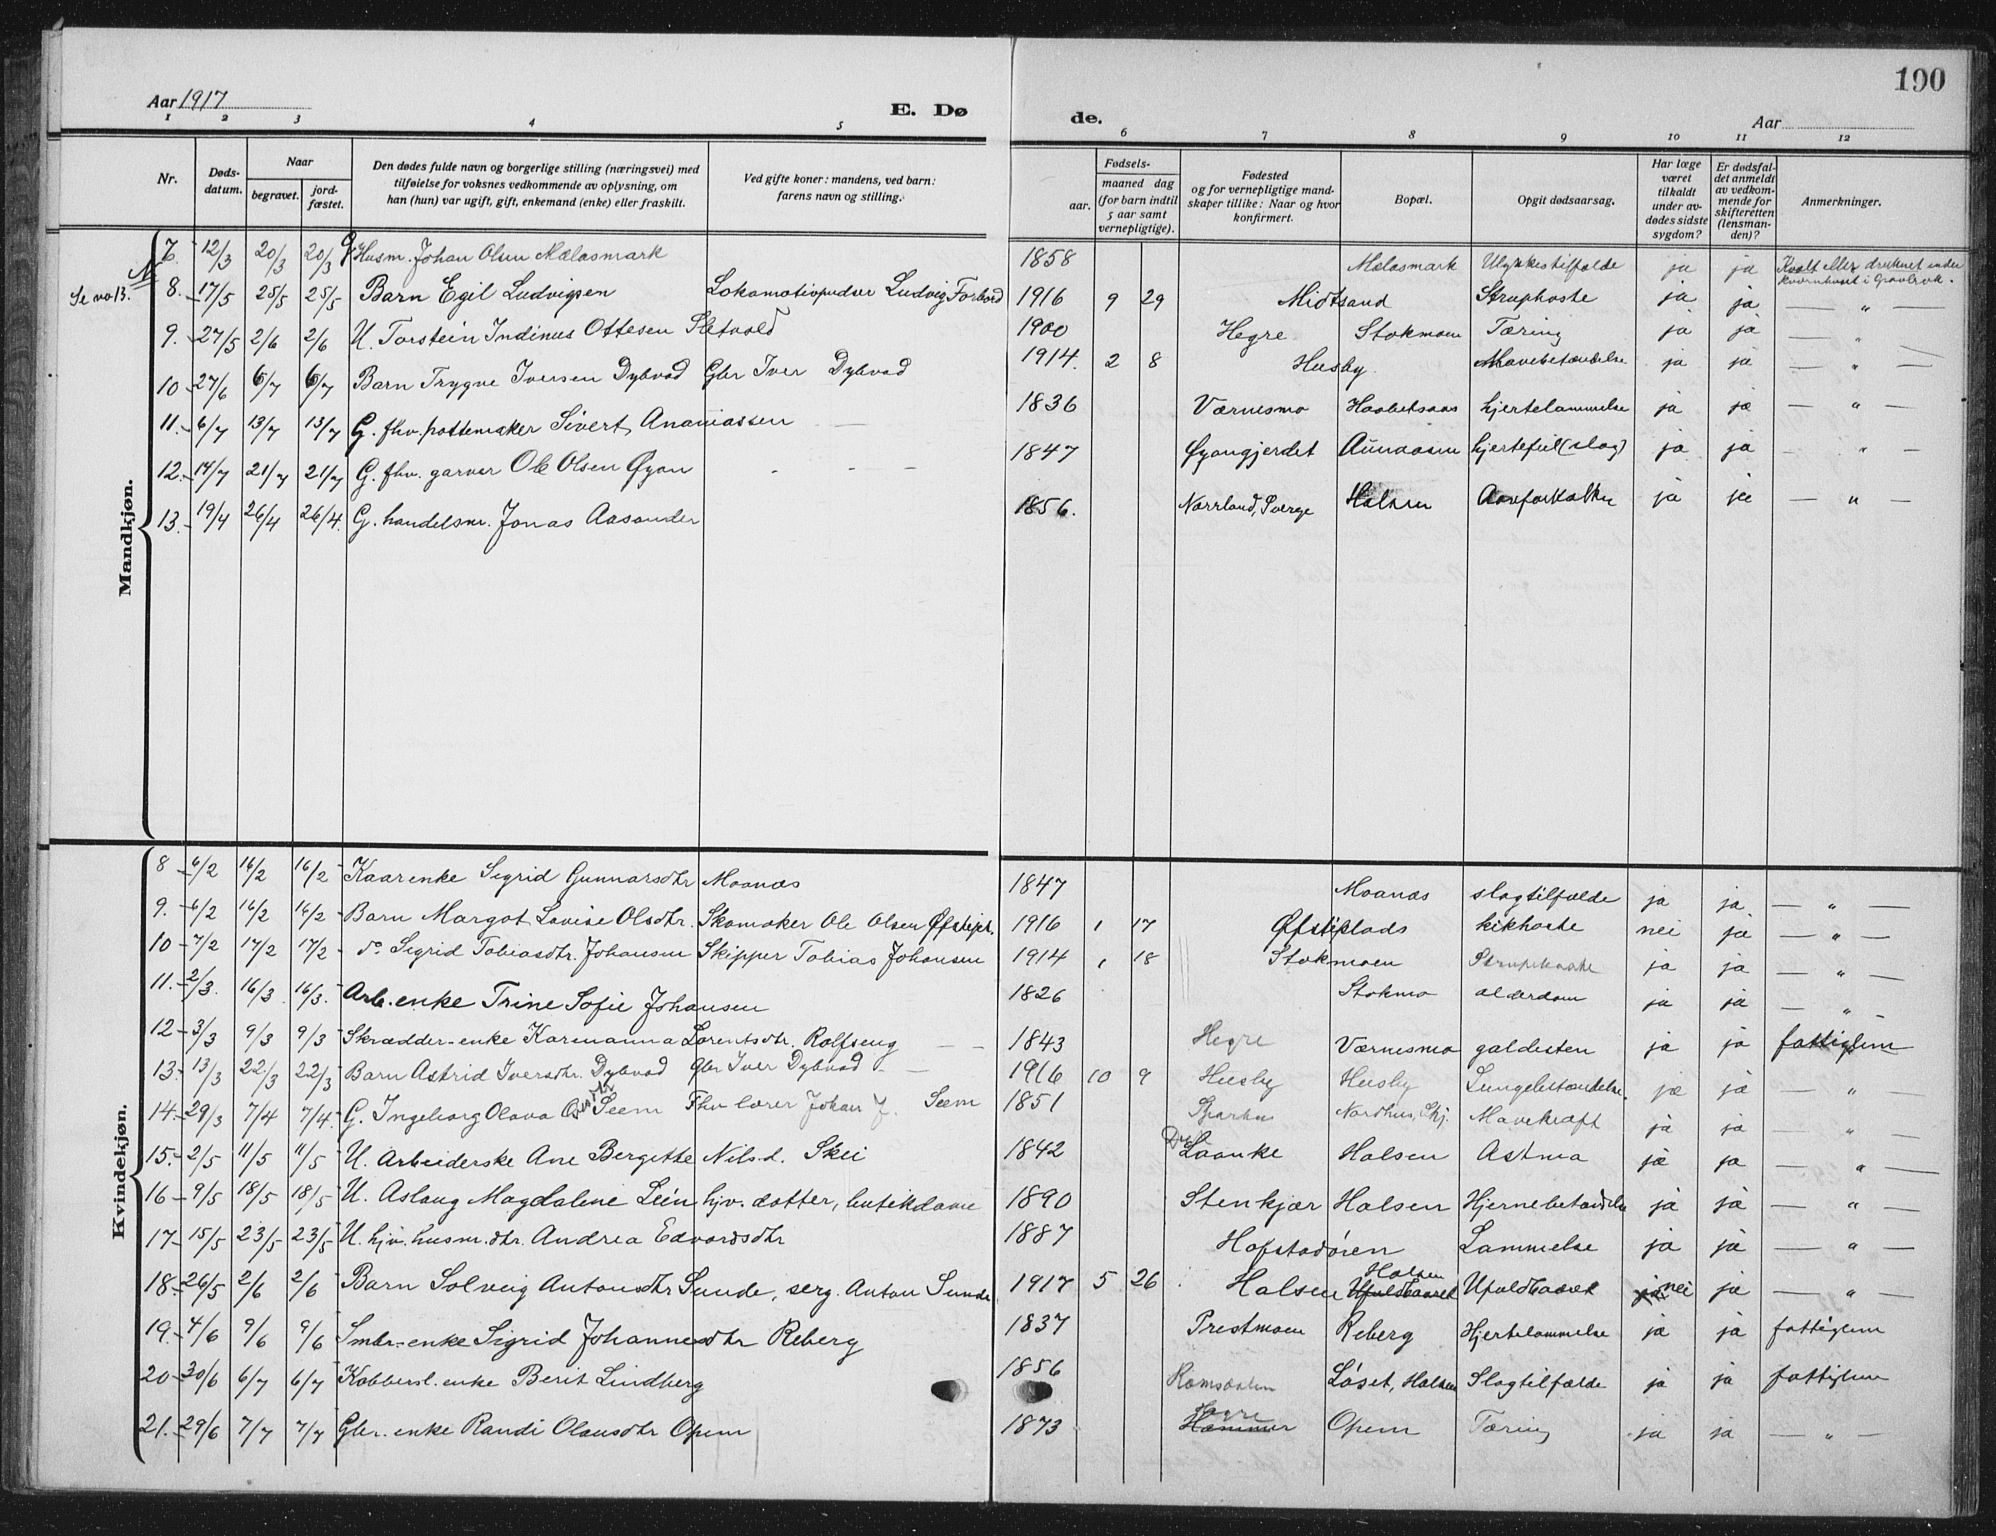 190
Aar 1917 E. Dø de. Aar
1 2 3 4 5 6 7 8 9 10 11 12
Nr. Døds-datum. Naar begravet. jord-fæstet. Den dødes fulde navn og borgerlige stilling (næringsvei) med tilføielse for voksnes vedkommende av oplysning, om han (hun) var ugift, gift, enkemand (enke) eller fraskilt. Ved gifte koner: mandens, ved barn: farens navn og stilling. Fødsels- aar. maaned dag (for barn indtil 5 aar samt vernepligtige). Fødested og for vernepligtige mandskaper tillike: Naar og hvor konfirmert. Bopæl. Opgit dødsaarsag. Har læge været tilkaldt under avdødes sidste sygdom? Er dødsfaldet anmeldt av vedkommende for skifteretten (lensmanden)? Anmerkninger.
Mandkjøn.
Se no 13.
7. 12/3 20/3 20/3 G. Husm. Johan Olsen Mælasmark 1858 Mælasmark Ulykkestilfælde ja ja Kvalt eller druknet under kvernhuset i
8. 17/5 25/5 25/5 Barn Egil Ludvigsen Lokomotivpudser Ludvig Forbord 1916 9 29 Midtsand Struphoste ja ja — " —
9. 27/5 2/6 2/6 U. Torstein Indinus Ottesen Sletvold 1900 Hegre Stokmoen Tæring ja ja — " —
10 27/6 6/7 6/7 Barn Trygve Iversen Dybvad Gbr Iver Dybvad 1914. 2 8 Husby Mavebetændelse ja ja — " —
11. 6/7 13/7 13/7 G. fhv. pottemaker Sivert Ananiassen — 1836 Værnesmo Haabetsaas hjertelammelse ja ja — " —
12. 14/7 21/7 21/7 G. fhv. garver Ole Olsen Øyan - - — 1847 Øyangjerdet Aunaasen hjertefeil (slag) ja ja — " —
13. 19/4 26/4 26/4. G. handelsm. Jonas Aasander 1856. Norrland, Sverge Halsen Aareforkalkn ja ja — " —
Kvindekjøn.
8 6/2 16/2 16/2 Kaarenke Sigrid Gunnarsdtr Moanæs 1847 Moanæs slagtilfælde ja ja. — " —
9. 6/2 16/2 16/2 Barn Margot Lovise Olsdtr. Skomaker Ole Olsen Øfstipl. 1916 1 17 Øfstiplads kikhoste nei ja — " —
10 7/2 17/2 17/2 do Sigrid Tobiasdtr. Johansen Skipper Tobias Johansen 1914 1 18 Stokmoen Strupehoste ja ja — " —
11. 2/3. 16/3 16/3. Arb. enke Trine Sofie Johansen 1826 Stokmo alderdom ja ja — " —
12 3/3 9/3 9/3 Skrædder-enke Karenanna Lorentsdtr. Rolfseng — — 1843 Hegre Værnesmo galdesten ja ja fattiglem
13. 13/3 22/3 22/3 Barn Astrid Iversdtr. Dybvad Gbr Iver Dybvad — 1916 10 9 Husby Husby Lungebetændelse. ja ja — " —
14. 29/3 7/4 7/4. G. Ingeborg Olava Seem Fhv lærer Johan J. Seem 1851 Sparbu Nordhus, Skj. Mavekræft ja ja — " —
15. 2/5 11/5 11/5 U. Arbeiderske Ane Bergitte Nilsd. Skei 1842 Laanke Halsen Astma ja ja — " —
16 9/5 18/5 18/5 U. Aslaug Magdalene Lein hjv. datter, butikdame 1890 Stenkjær Halsen Hjernebetændelse ja ja — " —
17 15/5 23/5 23/5 U. hjv. husm. dtr. Andrea Edvardsdtr 1887 Hofstadøren Lammelse ja ja — " —
18 26/5 2/6 2/6 Barn Solveig Antonsdtr Sunde, serg. Anton Sunde 1917 5 26 Halsen Ufuldbaaret Halsen Ufuldbaaret ja nei ja — " —
19. 4/6 9/6 9/6 Smbr-enke Sigrid Johannesdtr Reberg 1837 Prestmoen Reberg Hjertelammelse ja ja fattiglem
20 30/6 6/7 6/7 Kobbersl. enke Berit Lindberg 1856 Romsdalen Løset, Halsen Slagtilfælde ja ja fattiglem
21. 29/6 7/7 7/7 Gbr. enke Randi Olausdtr Opem 1873 Hammer Hegre Opem Tæring ja ja — " —